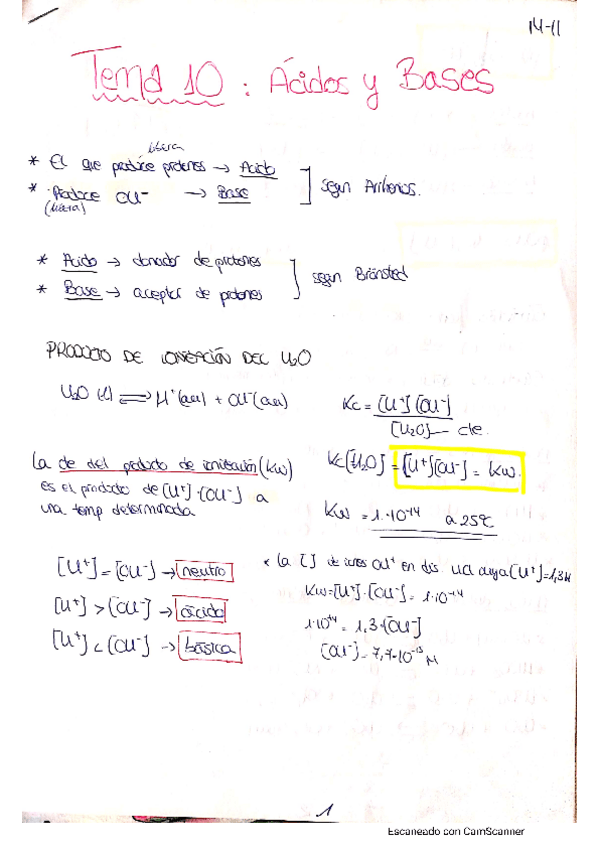 14-11
Tema 10 : Ácidos y Bases
libera
* El que produce protones → Ácido
* Produce OH⁻ → Base
(libera)
según Arrhenius.
* Ácido → donador de protones
* Base → aceptor de protones
según Brönsted
PRODUCTO DE IONIZACIÓN DEL H₂O
H₂O (l) ⇌ H⁺(aq) + OH⁻(aq)
Kc = [H⁺][OH⁻]
[H₂O] — cte.
La cte del producto de ionización (Kw)
es el producto de [H⁺]·[OH⁻] a
una temp determinada
Kc[H₂O] = [H⁺][OH⁻] = Kw.
Kw = 1·10⁻¹⁴ a 25ºC
[H⁺] = [OH⁻] → neutro
[H⁺] > [OH⁻] → ácida
[H⁺] < [OH⁻] → básica
* la [ ] de iones OH⁻ en dis. HCl cuya [H⁺]=1,3M
Kw=[H⁺]·[OH⁻] = 1·10⁻¹⁴
1·10⁻¹⁴ = 1,3·[OH⁻]
[OH⁻] = 7,7·10⁻¹⁵ M
1
Escaneado con CamScanner